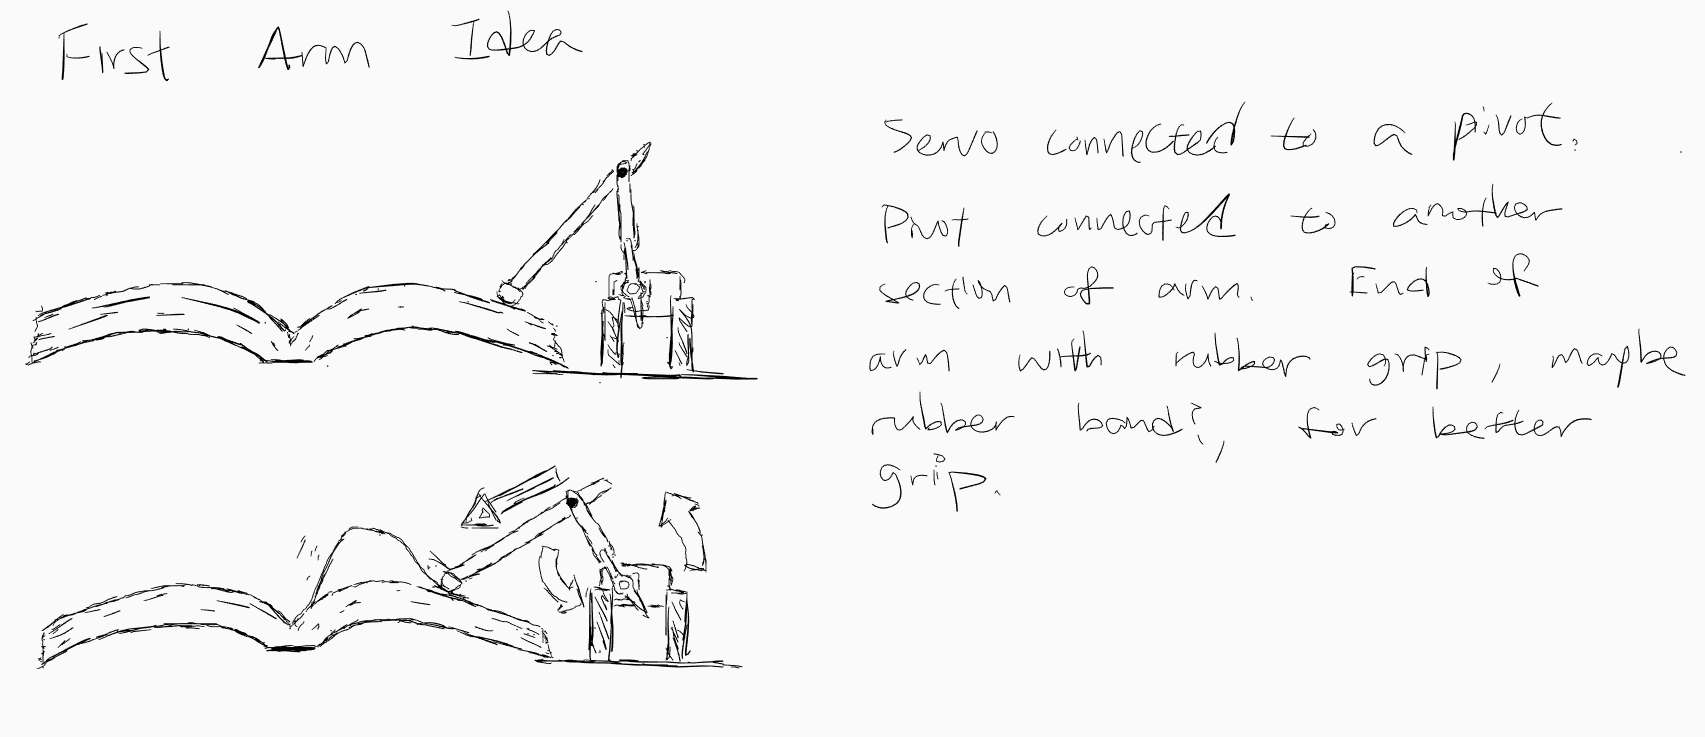 First Arm Idea
Servo connected to a pivot.
Pivot connected to another
section of arm. End of
arm with rubber grip, maybe
rubber band?, for better
grip.